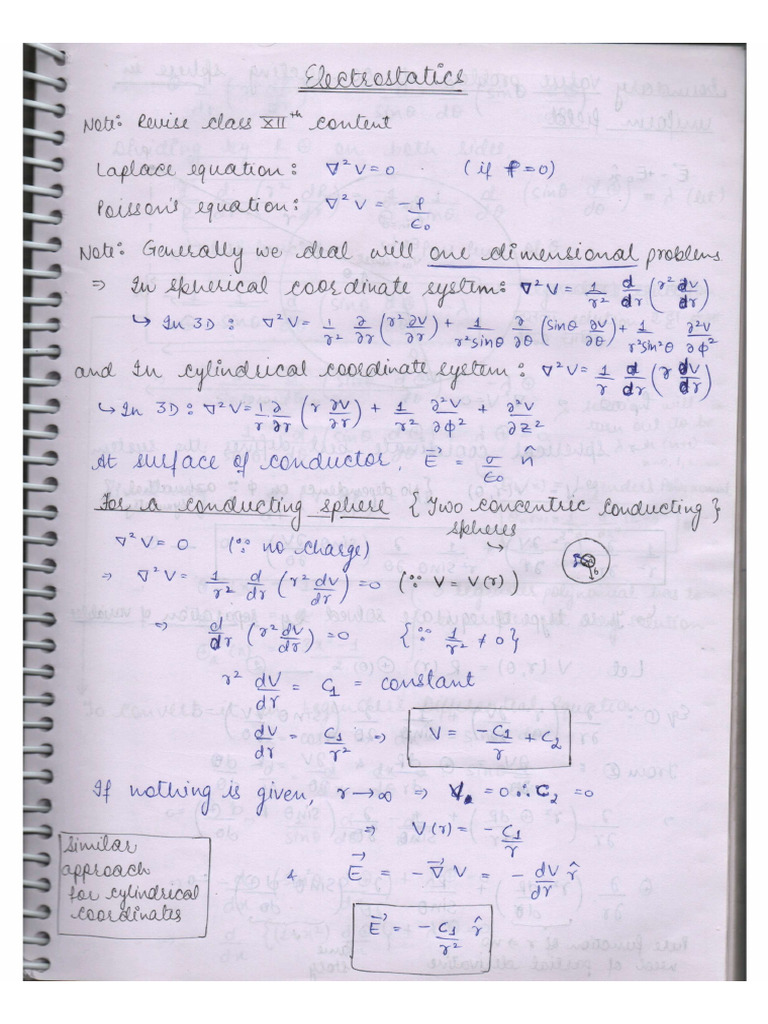 Electrostatics
Note: Revise class XIIth content
Laplace equation: ∇²V=0 (if ρ=0)
Poisson's equation: ∇²V = -ρ/ε₀
Note: Generally we deal will one dimensional problems
⇒ In spherical coordinate system: ∇²V = 1/r² d/dr (r² dV/dr)
↳ In 3D: ∇²V = 1/r² ∂/∂r (r² ∂V/∂r) + 1/r²sinθ ∂/∂θ (sinθ ∂V/∂θ) + 1/r²sin²θ ∂²V/∂φ²
and In cylindrical coordinate system: ∇²V = 1/r d/dr (r dV/dr)
↳ In 3D: ∇²V = 1/r ∂/∂r (r ∂V/∂r) + 1/r² ∂²V/∂φ² + ∂²V/∂z²
At surface of conductor, E⃗ = σ/ε₀ n̂
For a conducting sphere {Two concentric conducting}
spheres →
∇²V = 0 (∵ no charge)
b
⇒ ∇²V = 1/r² d/dr (r² dV/dr) = 0 (∵ V = V(r))
⇒ d/dr (r² dV/dr) = 0 {∵ 1/r² ≠ 0}
r² dV/dr = C₁ = constant
dV/dr = C₁/r² ⇒ V = -C₁/r + C₂
If nothing is given, r→∞ ⇒ V = 0 ∴ C₂ = 0
⇒ V(r) = -C₁/r
Similar
approach
for cylindrical
coordinates
& E⃗ = -∇⃗V = -dV/dr r̂
E⃗ = -C₁/r² r̂